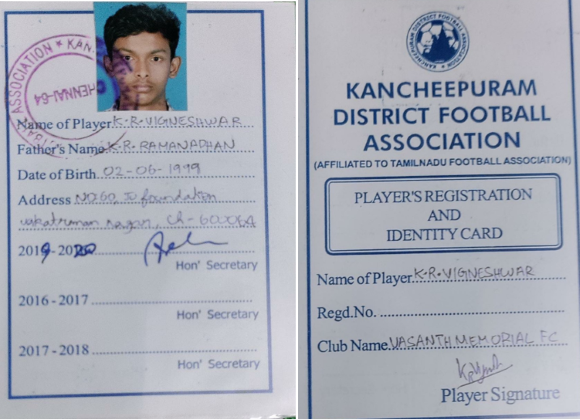 ASSOCIATION * KAN
CHENNAI-64
Name of Player K.R.VIGNESHWAR
Father's Name K.R.RAMANADHAN
Date of Birth 02-06-1999
Address NO:60 foundation
nagar, ch-600064
2019-2020
Hon' Secretary
2016-2017
Hon' Secretary
2017-2018
Hon' Secretary
KANCHEEPURAM DISTRICT FOOTBALL ASSOCIATION
KANCHEEPURAM
DISTRICT FOOTBALL
ASSOCIATION
(AFFILIATED TO TAMILNADU FOOTBALL ASSOCIATION)
PLAYER'S REGISTRATION
AND
IDENTITY CARD
Name of Player K.R.VIGNESHWAR
Regd.No.
Club Name VASANTH MEMORIAL FC
Player Signature